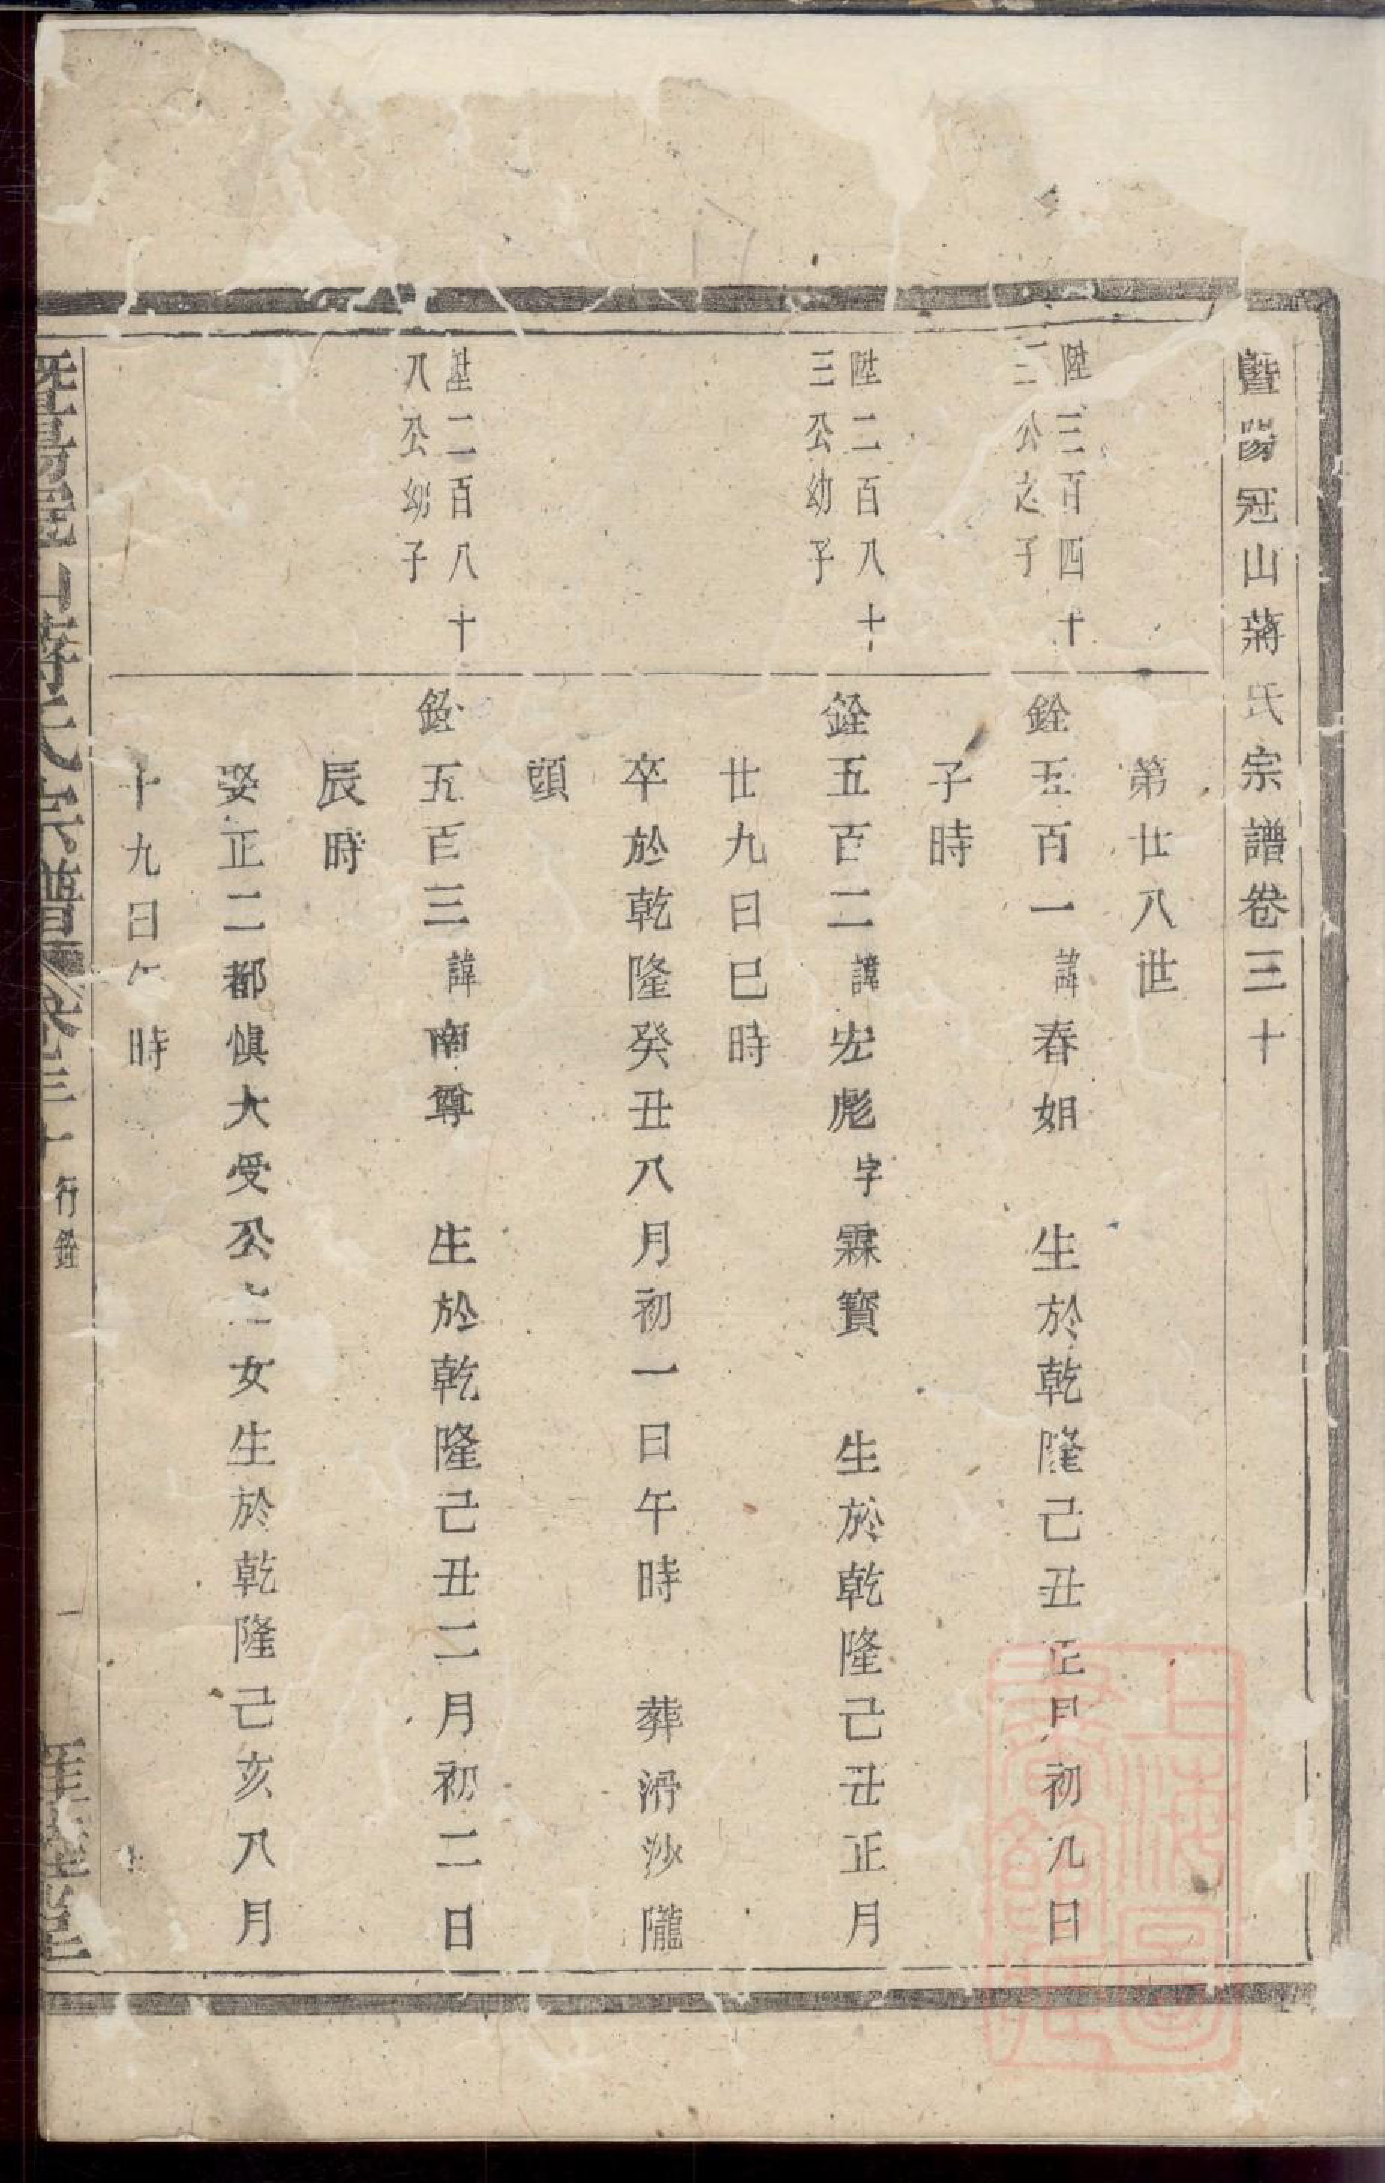 暨陽冠山蔣氏宗譜卷三十
第廿八世
陞三百四十
三公之子
銓五百一諱春姐 生於乾隆己丑正月初九日
子時
陞二百八十
三公幼子
銓五百二諱宏彪字霖寶 生於乾隆己丑正月
廿九日巳時
卒於乾隆癸丑八月初一日午時 葬滑沙隴
頭
陞二百八十
八公幼子
銓五百三諱南尊 生於乾隆己丑二月初二日
辰時
娶正二都慎大受公之二女生於乾隆己亥八月
十九日午時
暨陽冠山蔣氏宗譜 卷三十 行銓 一
上海圖書館藏